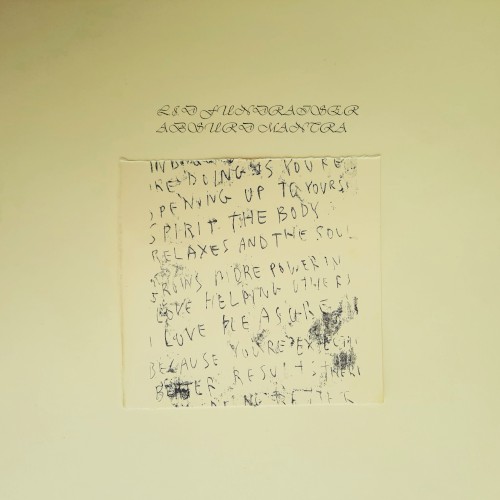 LSD FUNDRAISER
ABSURD MANTRA
DOING IS YOU'RE
OPENING UP TO YOURS
SPIRIT THE BODY
RELAXES AND THE SOUL
GROWS MORE POWER IN
LOVE HELPING OTHERS
I LOVE PLEASURE
BECAUSE YOU'RE EXPECTI
BETTER RESULTS THERE